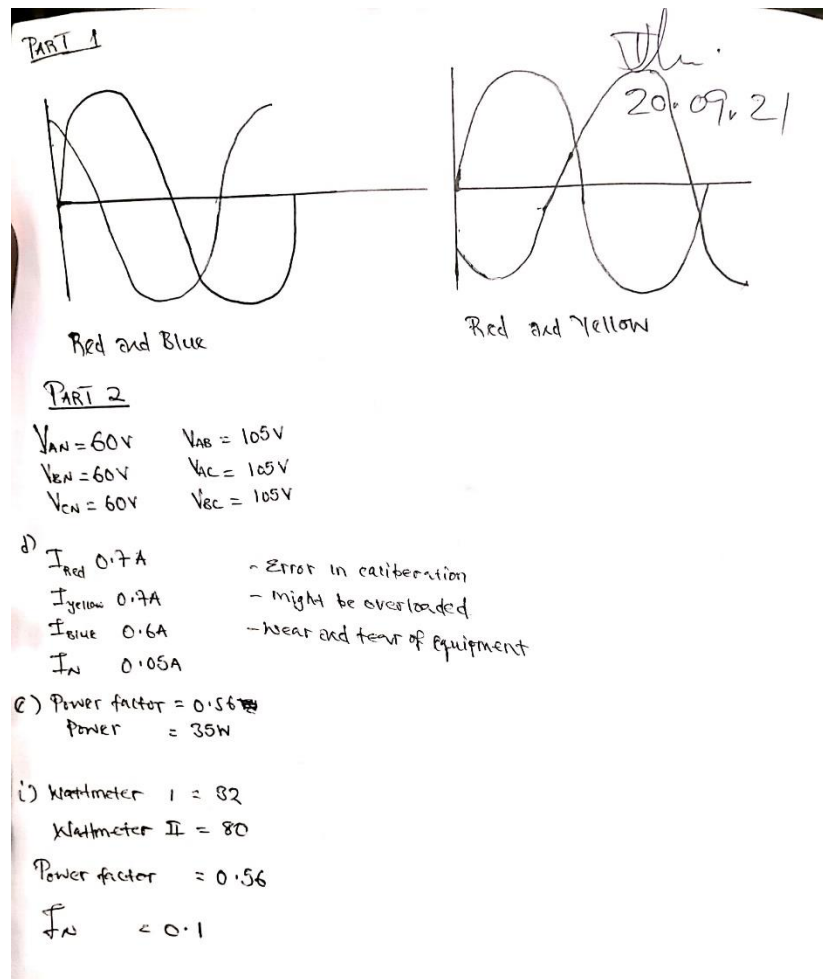 PART 1
20.09.21
Red and Blue
Red and Yellow
PART 2
VAN = 60V VAB = 105V
VBN = 60V VAC = 105V
VCN = 60V VBC = 105V
d)
IRed 0.7A - Error in caliberation
Iyellow 0.7A - might be overloaded
IBlue 0.6A - wear and tear of equipment
IN 0.05A
e) Power factor = 0.56
Power = 35W
i) Wattmeter 1 = 32
Wattmeter II = 80
Power factor = 0.56
IN = 0.1